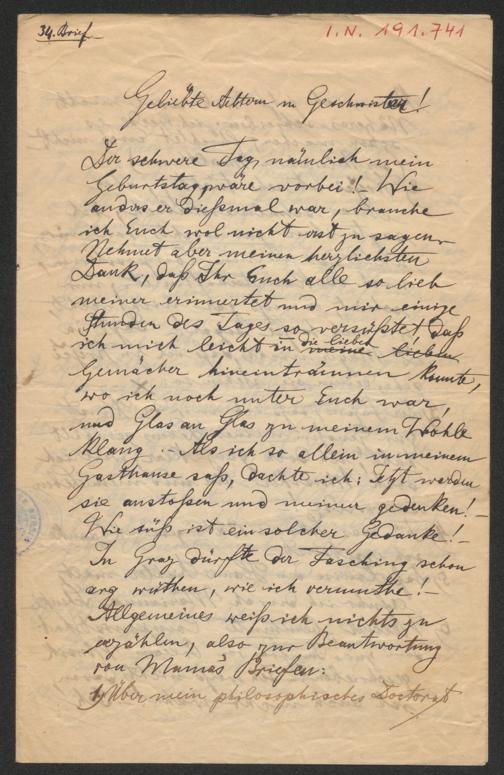 34. Brief
I. N. 191.741
Geliebte Aeltern u Geschwister!
Der schwere Tag, nämlich mein
Geburtstag, wäre vorbei! – Wie
anders er dießmal war, brauche
ich Euch wol nicht erst zu sagen.
Nehmet aber meinen herzliebsten
Dank, daß Ihr Euch alle so lieb
meiner erinnertet und mir einige
Stunden des Tages so versüßtet, daß
ich mich leicht in die lieben meine lieben
Gemächer hineinträumen konnte,
wo ich noch unter Euch war,
und Glas an Glas zu meinem Wohle
klang. – Als ich so allein in meinem
Gasthause saß, dachte ich: Jetzt werden
sie anstoßen und meiner gedenken! –
Wie süß ist ein solcher Gedanke! –
In Graz dürfte der Fasching schon
arg wüthen, wie ich vermuthe! –
Allgemeines weiß ich nichts zu
erzählen, also zur Beantwortung
von Mama's Briefen:
1) Über mein philosophisches Doctorat